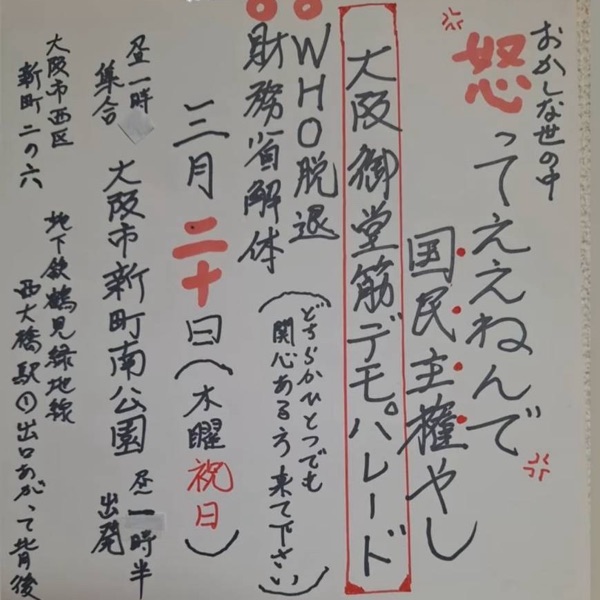 おかしな世の中
怒ってええねんで
国民主権やし
大阪御堂筋デモパレード
WHO脱退
財務省解体
(どちらかひとつでも
関心ある方来て下さい)
三月二十日(木曜祝日)
昼一時
集合
大阪市新町南公園
昼一時半
出発
大阪市西区
新町二の六
地下鉄鶴見緑地線
西大橋駅①出口あがって背後